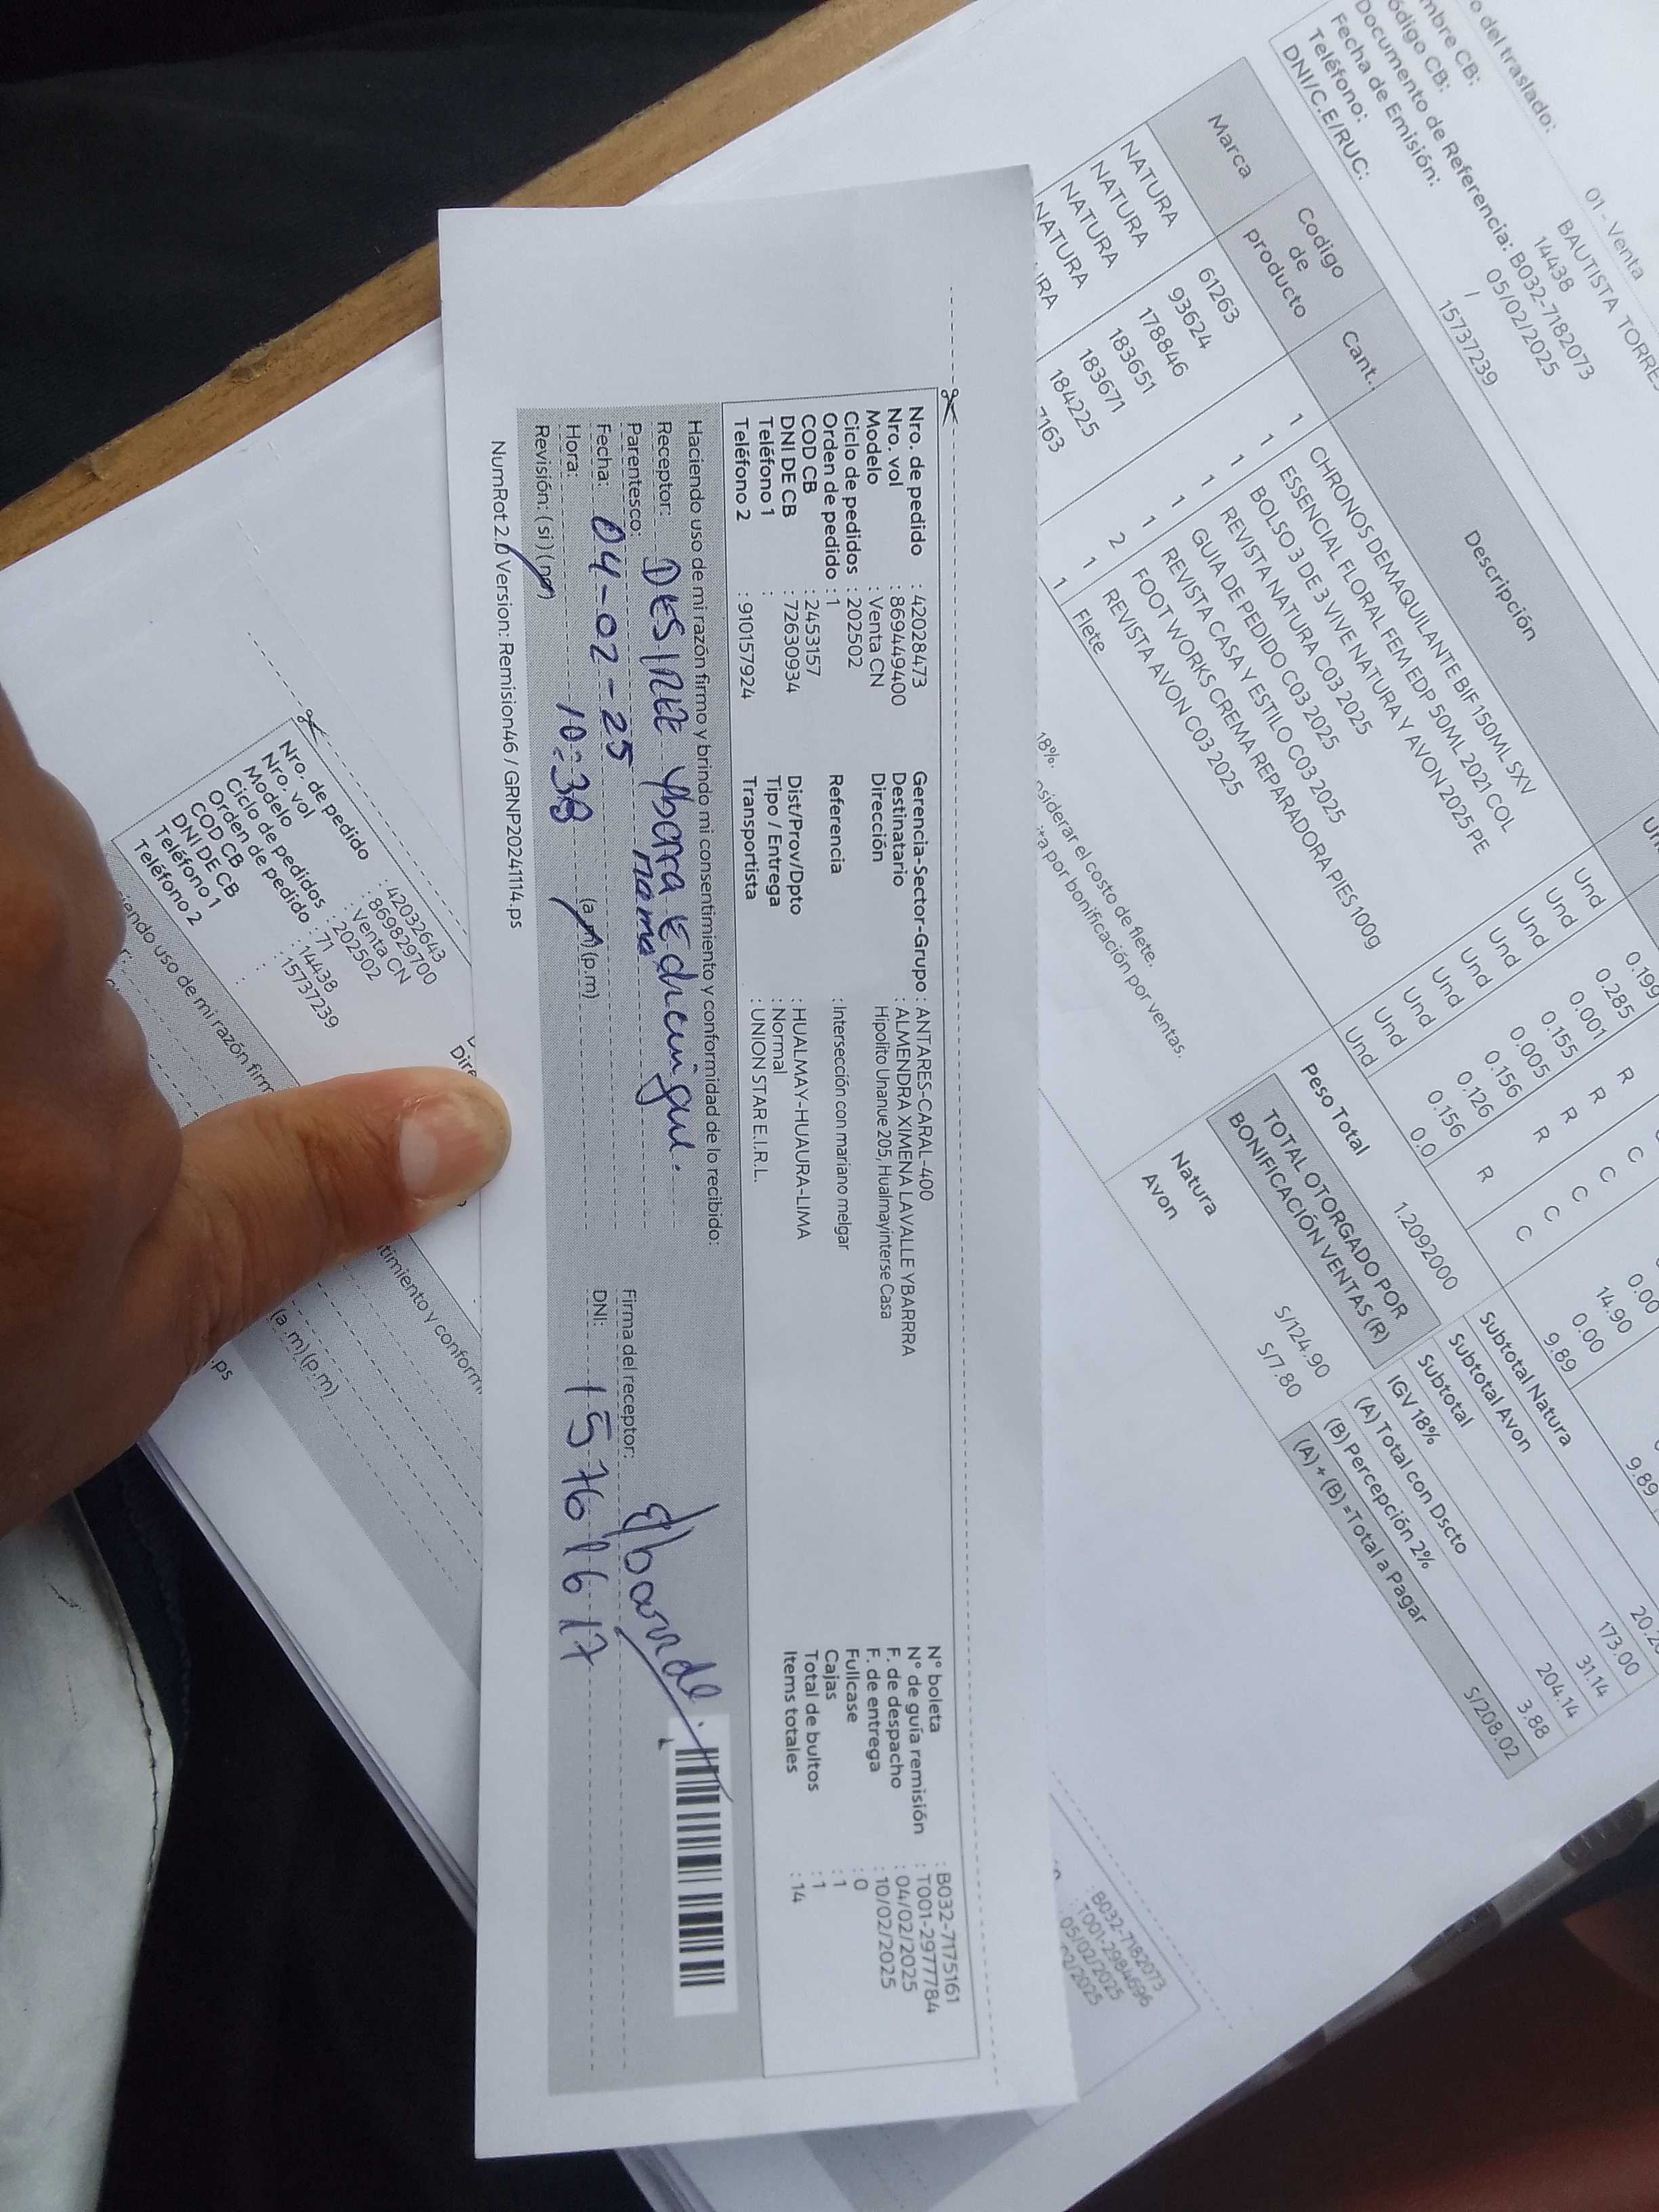 Nro. de pedido : 42028473
Nro. vol : 869449400
Modelo : Venta CN
Ciclo de pedidos : 202502
Orden de pedido : 1
COD CB : 2453157
DNI DE CB : 72630934
Teléfono 1 :
Teléfono 2 : 910157924
Gerencia-Sector-Grupo : ANTARES-CARAL-400
Destinatario : ALMENDRA XIMENA LAVALLE YBARRRA
Dirección Hipolito Unanue 205, Hualmayinterse Casa
Referencia : Intersección con mariano melgar
Dist/Prov/Dpto : HUALMAY-HUAURA-LIMA
Tipo / Entrega : Normal
Transportista : UNION STAR E.I.R.L.
N° boleta : B032-7175161
N° de guía remisión : T001-2977784
F. de despacho : 04/02/2025
F. de entrega : 10/02/2025
Fullcase : 0
Cajas : 1
Total de bultos : 1
Items totales : 14
Haciendo uso de mi razón firmo y brindo mi consentimiento y conformidad de lo recibido:
Receptor: DESIREE Ybarra
Parentesco: mama
Fecha: 04-02-25
Hora: 10:38 (a.m) (p.m)
Revisión: (si) (no)
Firma del receptor:
DNI: 15761617
NumRot 2.0 Version: Remision46 / GRNP20241114.ps
o del traslado: 01 - Venta
mbre CB: BAUTISTA TORRE
ódigo CB: 14438
Documento de Referencia: B032-7182073
Fecha de Emisión: 05/02/2025
Teléfono: /
DNI/C.E/RUC: 15737239
Marca Codigo de producto Cant. Descripción
NATURA 61263 1 CHRONOS DEMAQUILANTE BIF 150ML SXV Und 0.199
NATURA 93624 1 ESSENCIAL FLORAL FEM EDP 50ML 2021 COL Und 0.285
NATURA 178846 1 BOLSO 3 DE 3 VIVE NATURA Y AVON 2025 PE Und 0.001
NATURA 183651 1 REVISTA NATURA C03 2025 Und 0.155
URA 183671 1 GUIA DE PEDIDO C03 2025 Und 0.005
184225 1 REVISTA CASA Y ESTILO C03 2025 Und 0.156
7163 2 FOOT WORKS CREMA REPARADORA PIES 100g Und 0.126
1 REVISTA AVON C03 2025 Und 0.156
1 Flete Und 0.0
Peso Total 1.2092000
18%.
nsiderar el costo de flete.
por bonificación por ventas.
TOTAL OTORGADO POR
BONIFICACIÓN VENTAS (R)
Natura S/124.90
Avon S/7.80
Subtotal Natura
Subtotal Avon 20.2
Subtotal 173.00
IGV 18% 31.14
(A) Total con Dscto 204.14
(B) Percepción 2% 3.88
(A) + (B) = Total a Pagar S/208.02
Nro. de pedido : 42032643
Nro. vol : 869829700
Modelo : Venta CN
Ciclo de pedidos : 202502
Orden de pedido : 71
COD CB : 14438
DNI DE CB : 15737239
Teléfono 1 :
Teléfono 2 :
Dire
iendo uso de mi razón firm
timiento y conform
(a.m) (p.m)
.ps
: B032-7182073
: T001-2984696
05/02/2025
02/2025